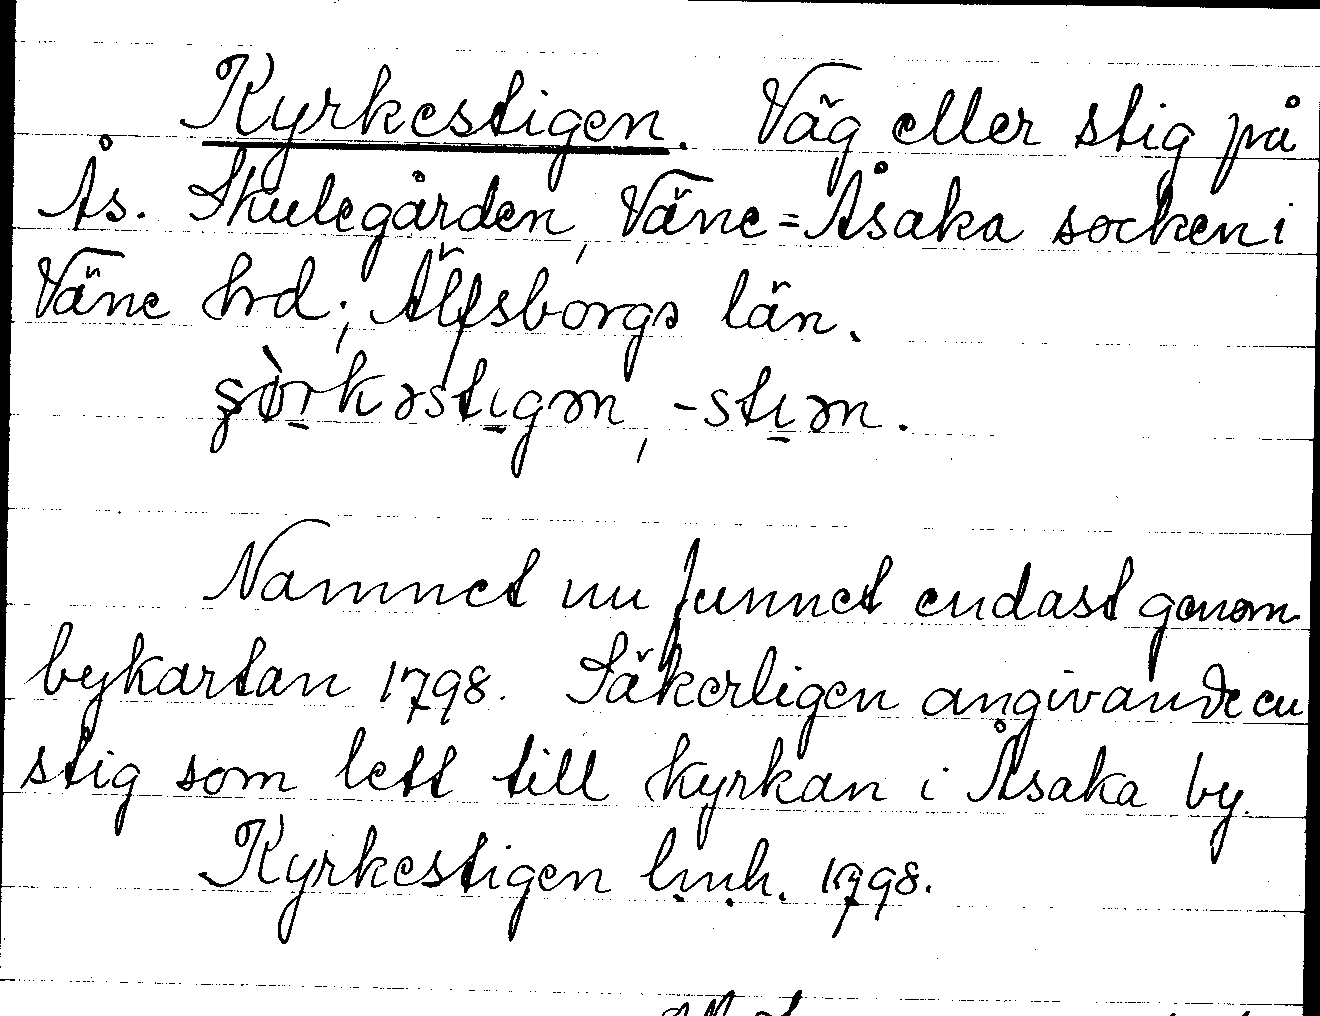 Kyrkestigen. Väg eller stig på
Ås. Skulegården, Väne=Åsaka socken i
Väne hrd; Älfsborgs län.
-stın.
Namnet nu funnet endast genom
bykartan 1798. Säkerligen angivande en
stig som lett till kyrkan i Åsaka by.
Kyrkestigen lmh. 1798.